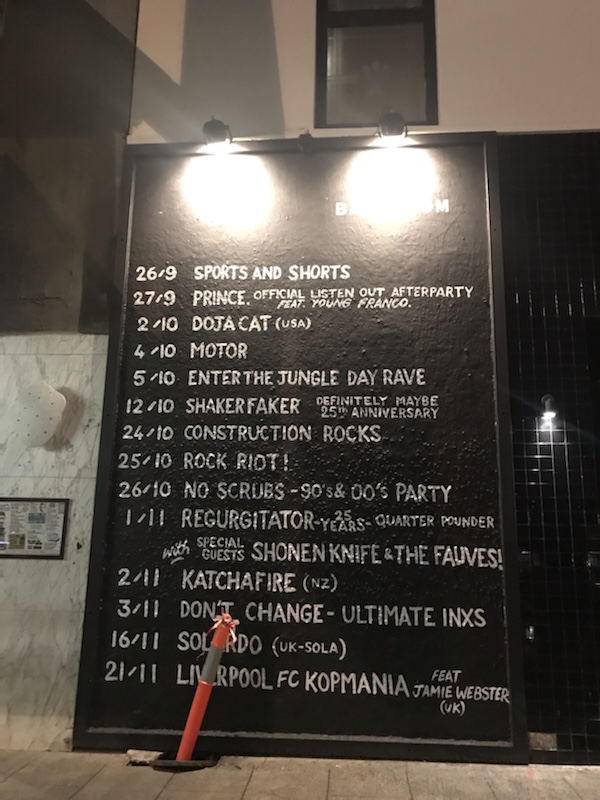 26/9 SPORTS AND SHORTS
27/9 PRINCE. OFFICIAL LISTEN OUT AFTERPARTY
FEAT. YOUNG FRANCO.
2/10 DOJA CAT (USA)
4/10 MOTOR
5/10 ENTER THE JUNGLE DAY RAVE
12/10 SHAKERFAKER DEFINITELY MAYBE
25th ANNIVERSARY
24/10 CONSTRUCTION ROCKS
25/10 ROCK RIOT!
26/10 NO SCRUBS - 90's & 00's PARTY
1/11 REGURGITATOR - 25 YEARS - QUARTER POUNDER
with SPECIAL GUESTS SHONEN KNIFE & THE FAUVES!
2/11 KATCHAFIRE (NZ)
3/11 DON'T CHANGE - ULTIMATE INXS
16/11 SOLARDO (UK-SOLA)
21/11 LIVERPOOL FC KOPMANIA FEAT
JAMIE WEBSTER
(UK)